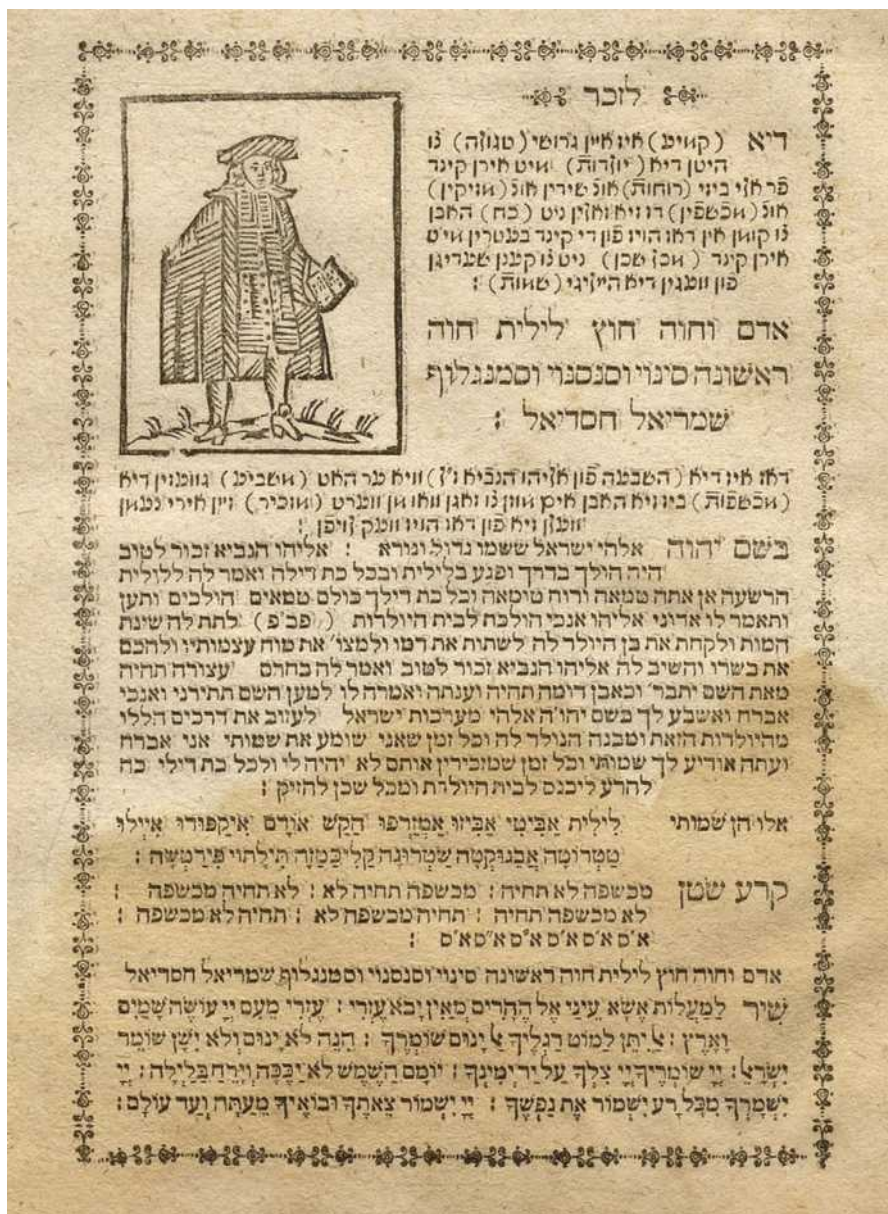 לזכר
דיא (קמיע) איז איין גרוסי (סגולה) צו
היטן דיא (יולדות) מיט אירן קינד
פר אלי ביזי (רוחות) אונ' שידין אונ' (מזיקין)
אונ' (מכשפין) דז זיא זאלין ניט (כח) האבן
צו קומן אין דאז הויז פון די קינד בעטרין מיט
אירן קינד (מכל שכן) ניט צו קענן שעדיגן
פון וועגין דיא הייליגי (שמות) :
אדם וחוה חוץ לילית חוה
ראשונה סינוי וסנסנוי וסמנגלוף
שמריאל חסדיאל :
דאז איז דיא (השבעה פון אליהו הנביא ז"ל) וויא ער האט (משביע) גוועזין דיא
(מכשפות) ביז זיא האבן אים מוזן צו זאגן וואו מן ווערט (מזכיר) זיין אירי נעמן
ווערן זיא פון דאז הויז וועק לויפן :
בשם יהוה אלהי ישראל ששמו גדול ונורא : אליהו הנביא זכור לטוב
היה הולך בדרך ופגע בלילית ובכל כת דילה ואמר לה ללולית
הרשעה אן אתה טמאה ורוח טימאה וכל כת דילך כולם טמאים הולכים ותען
ותאמר לו אדוני אליהו אנכי הולכת לבית היולדות (פב״פ) לתת לה שינת
המות ולקחת את בן היולד לה לשתות את דמו ולמצו' את מוח עצמותיו ולהכם
את בשרו והשיב לה אליהו הנביא זכור לטוב ואמר לה בחרם עצורה תחיה
מאת השם יתבר' וכאבן דומה תחיה וענתה ואמרה לו למען השם תתירני ואנכי
אברח ואשבע לך בשם יהו'ה אלהי מערכות ישראל לעזוב את דרכים הללו
מהיולדות הזאת ומבנה הנולד לה וכל זמן שאני שומע את שמותי אני אברח
ועתה אודיע לך שמותי וכל זמן שמזכירין אותם לא יהיה לי ולכל כת דילי כח
להרע ליכנס לבית היולדת ומכל שכן להזיק :
אלו הן שמותי לילית אביטי אביזו אמזרפו הקש אודם איקפודו איילו
טטרוטה אבנוקטה שטרונה קליכטזה תילתוי פירטשה :
קרע שטן מכשפה לא תחיה : מכשפה תחיה לא : לא תחיה מכשפה :
לא מכשפה תחיה : תחיה מכשפה לא : תחיה לא מכשפה :
א"ס א"ס א"ס א"ס א"ס א"ס :
אדם וחוה חוץ לילית חוה ראשונה סינוי וסנסנוי וסמנגלוף שמריאל חסדיאל
שיר לַמַעֲלוֹת אֶשָא עֵינַי אֶל הֶהָרִים מֵאַיִן יָבֹא עֶזְרִי : עֶזְרִי מֵעִם יְיָ עוֹשֵׂה שָׁמַיִם
וָאָרֶץ : אַל יִתֵּן לַמוֹט רַגְלֶיךָ אַל יָנוּם שׁוֹמְרֶךָ : הִנֵּה לֹא יָנוּם וְלֹא יִישָׁן שׁוֹמֵר
יִשְׂרָאֵל : יְיָ שׁוֹמְרֶיךָ יְיָ צִלְךָ עַל יַד יְמִינֶךָ : יוֹמָם הַשֶׁמֶשׁ לֹא יַכֶּכָּה וְיָרֵחַ בַּלַיְלָה : יְיָ
יִשְׁמָרְךָ מִכָּל רָע יִשְׁמוֹר אֶת נַפְשֶׁךָ : יְיָ יִשְׁמוֹר צֵאתְךָ וּבוֹאֶיךָ מֵעַתָּה וְעַד עוֹלָם :